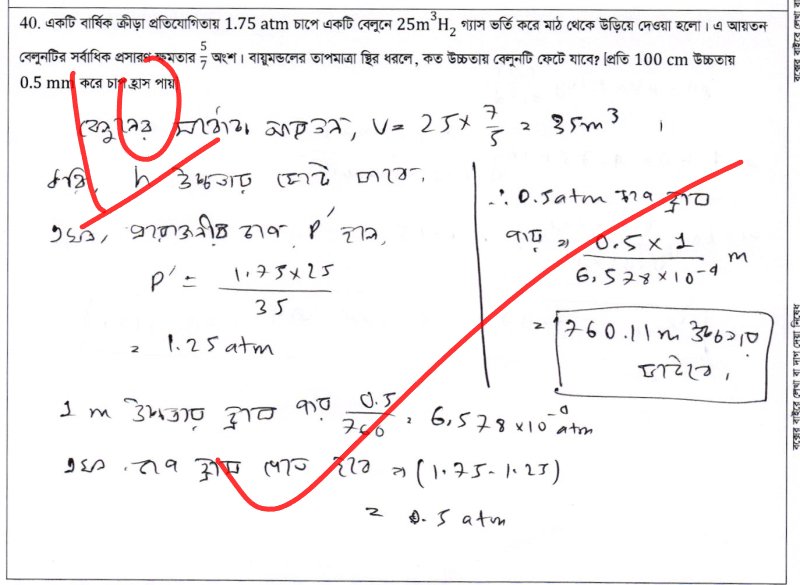 40. একটি বার্ষিক ক্রীড়া প্রতিযোগিতায় 1.75 atm চাপে একটি বেলুনে 25m³H₂ গ্যাস ভর্তি করে মাঠ থেকে উড়িয়ে দেওয়া হলো। এ আয়তন
বেলুনটির সর্বাধিক প্রসারণ ক্ষমতার 5/7 অংশ। বায়ুমন্ডলের তাপমাত্রা স্থির ধরলে, কত উচ্চতায় বেলুনটি ফেটে যাবে? [প্রতি 100 cm উচ্চতায়
0.5 mm করে চাপ হ্রাস পায়]
10
বেলুনের সর্বোচ্চ আয়তন, V = 25 × 7/5 = 35m³ ।
ধরি, h উচ্চতায় ফেটে যাবে,
এখন, প্রয়োজনীয় চাপ P′ হলে,
P′ = 1.75×25/35
= 1.25 atm
1 m উচ্চতায় হ্রাস পায় 0.5/760 = 6.578 ×10⁻⁴ atm
এখন চাপ হ্রাস পেতে হবে ⇒ (1.75 - 1.25)
= 0.5 atm
∴ 0.5atm চাপ হ্রাস
পায় ⇒ 0.5 × 1/6.578×10⁻⁴ m
= 760.11m উচ্চতায়
ফাটবে।
বক্সের বাইরে লেখা বা দাগ দেয়া নিষেধ